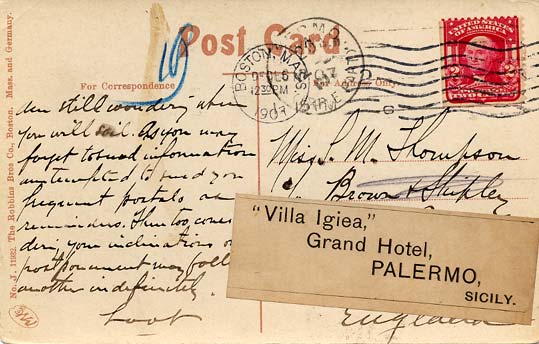 Post Card
For Correspondence
For Address Only
No. J. 11932. The Robbins Bros Co., Boston, Mass. and Germany.
BOSTON, MASS.
DEC 6
12 30 PM
1907
UNITED STATES OF AMERICA
2 2
Am still wondering when
you will sail. As you may
forget to send information
am tempted to send you
frequent postals as
reminders. Then too consi-
dering your inclinations
postponement may follow
another indefinitely.
Miss S. M. Thompson
Brown & Shipley
"Villa Igiea,"
Grand Hotel,
PALERMO,
SICILY.
England